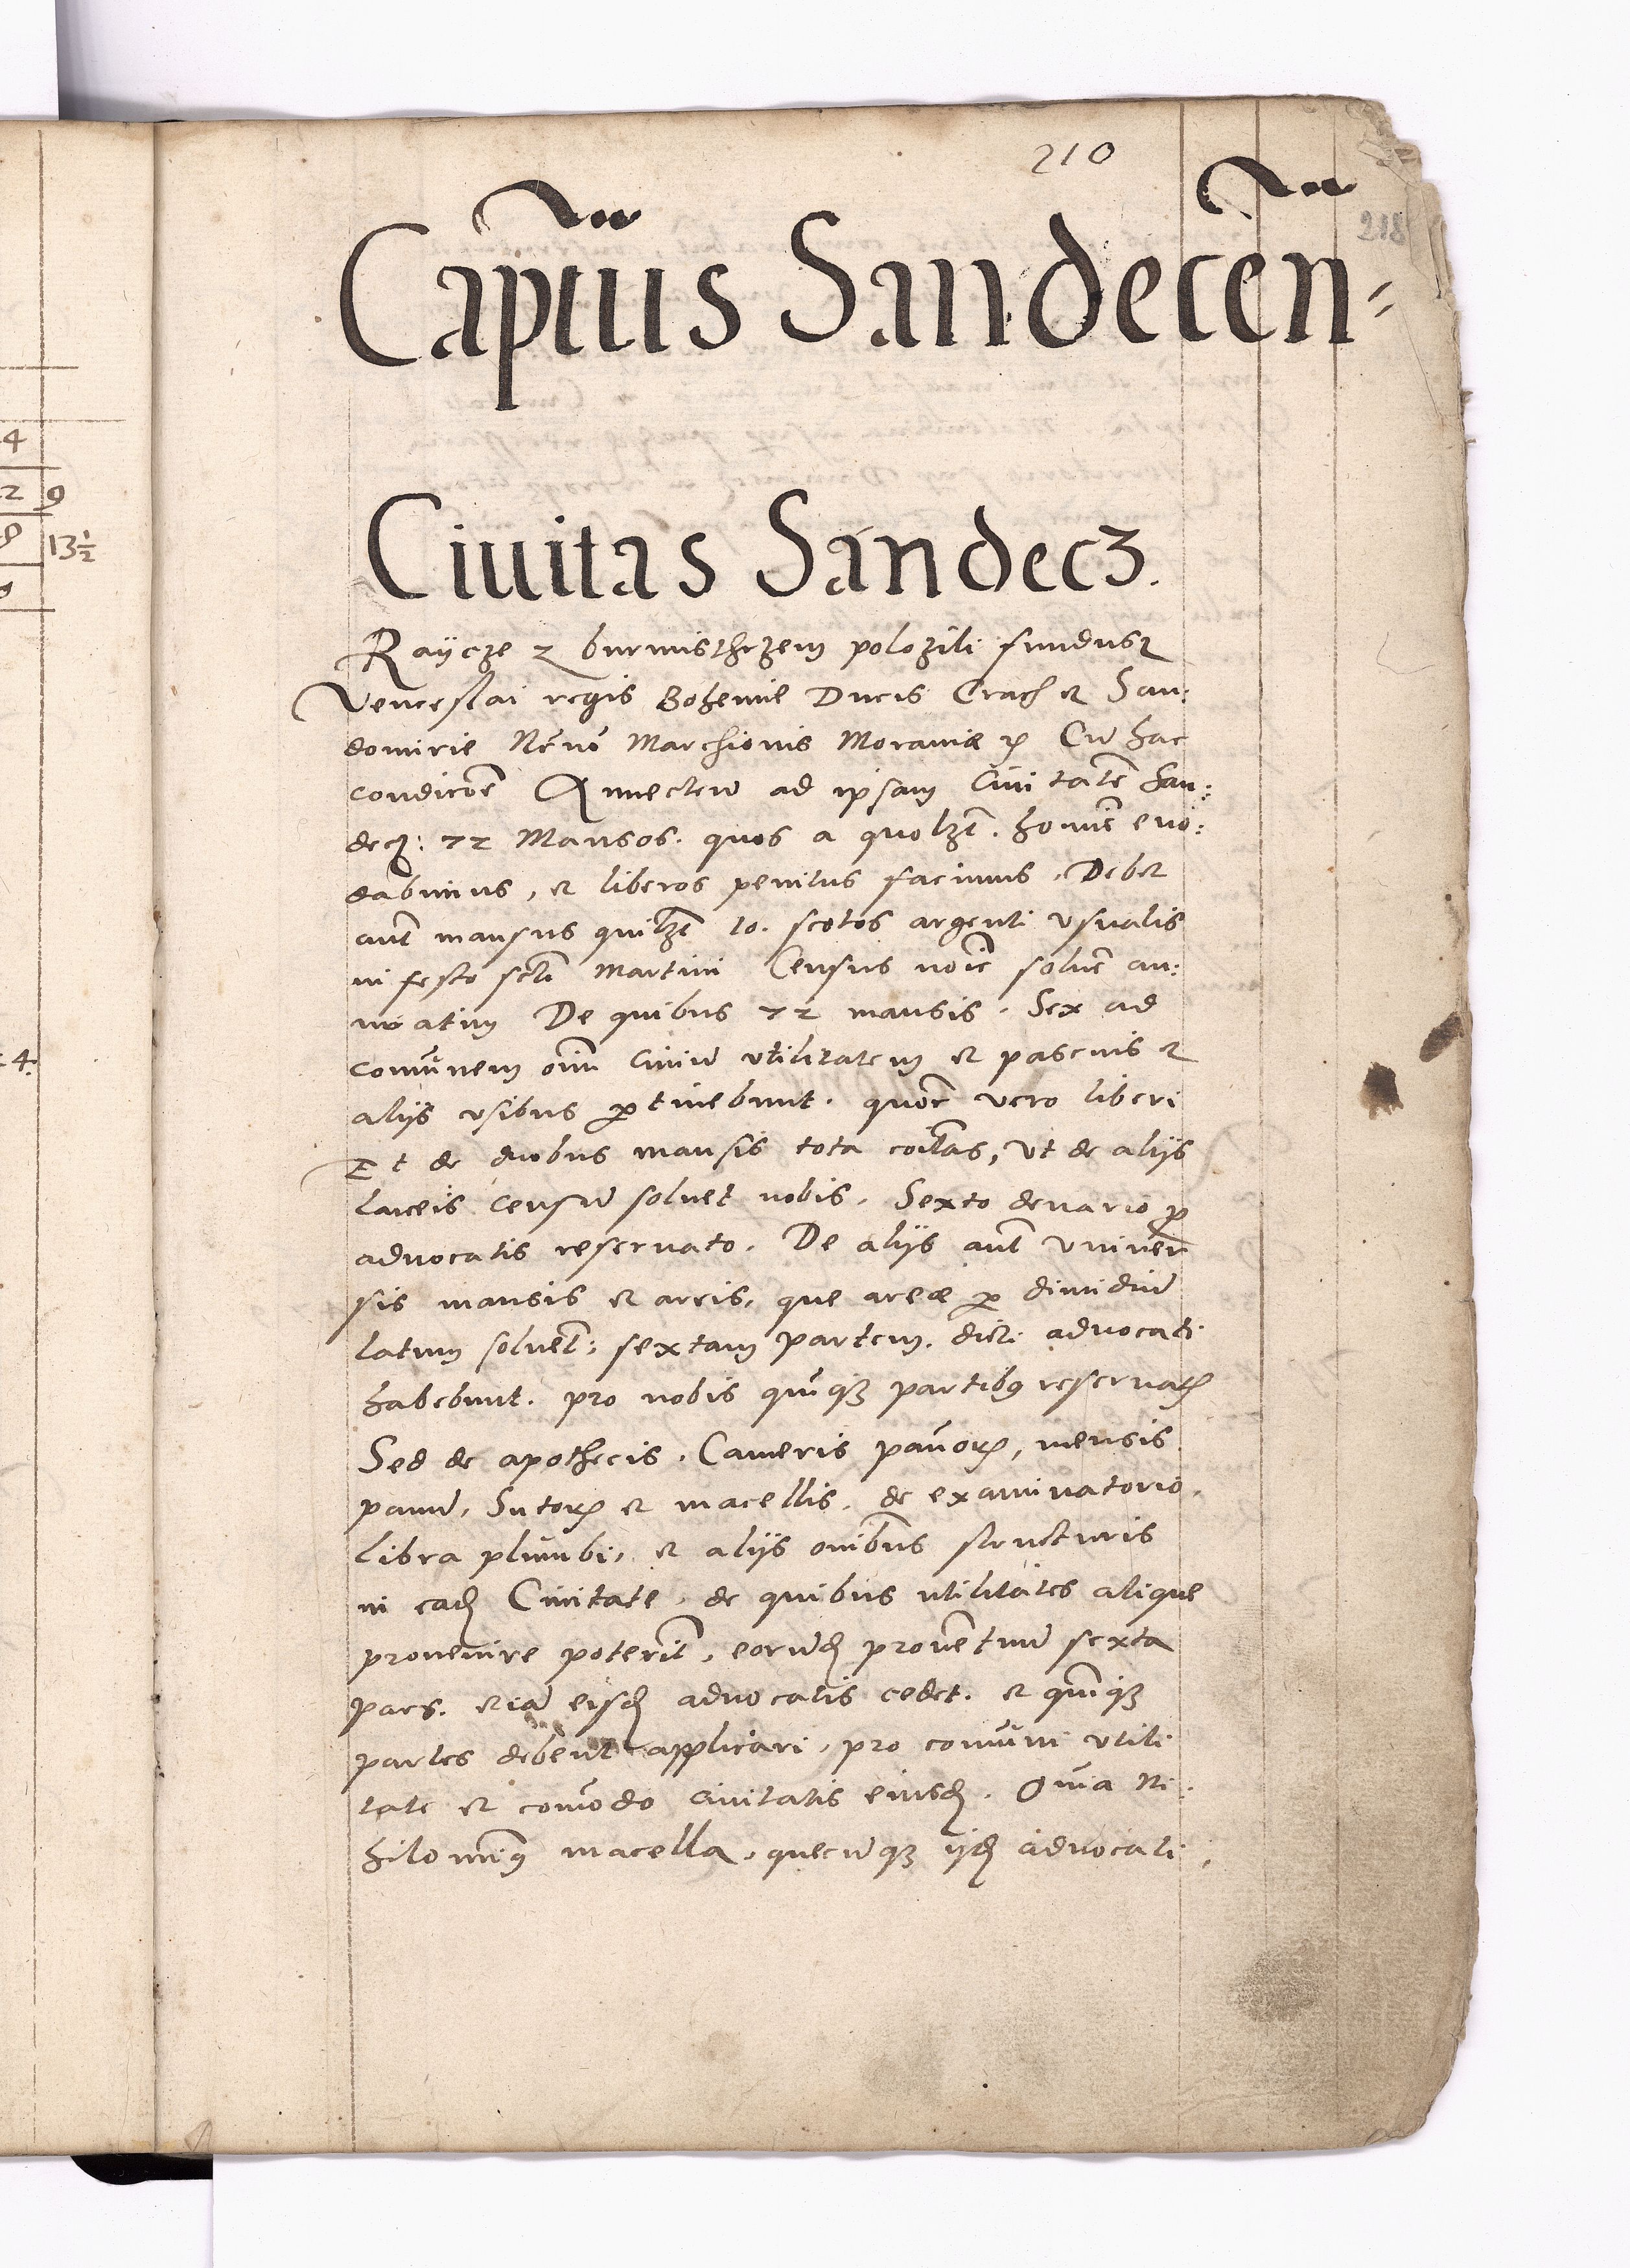 210
218
Captūs Sandecēn-
Ciuitas Sandecz.
Raÿcze z burmisthrzem polozili fundusz
Venceslai regis Bohemie Ducis Crach et San:
domirie Marchionis Moraviæ Cū hac
condicōe Annectim̄ ad ipsam Ciuitatē San:
decz: 72 Mansos. quos a quolzt. homīe eno:
dabimus, et liberos penitus facimus. Debet
aūt mansus quilzt 10. scotos argenti vsualis
in festo scti Martini Census noīe soluē an:
nuatim De quibus 72 mansis. Sex ad
comūnem oīm Ciuiū vtilitatem et pascuis et
alijs vsibus ꝑtinebunt. vero liberi
Et de duobus mansis tota coītas, vt de alijs
laneis Censū soluet nobis. Sexto denario ꝓ
advocatis reseruato. De alijs aūt vniuer
sis mansis et areis, que areæ ꝓ dimidiū
latum soluēt; sextam partem. dicti advocati
habebunt. pro nobis quīqȝ partibꝰ reseruatꝭ
Sed de apothecis. Cameris panoꝝ, mensis
panū, Sutoꝝ et macellis. de examinatorio.
libra plumbi, et alijs oībus structuris
in eadꝫ Ciuitate. de quibus utilitates alique
prouenire poterīt, eorūdꝫ prouētuū sexta
pars. etiā eisdꝫ advocatis cedet. et quīqȝ
partes debent applicari, pro comūni vtili
tate et comōdo Ciuitatis eiusdꝫ. Quia Ni:
hilominꝰ macella. quecūqȝ ijdꝫ advocati,
4
2 9
13½
4.